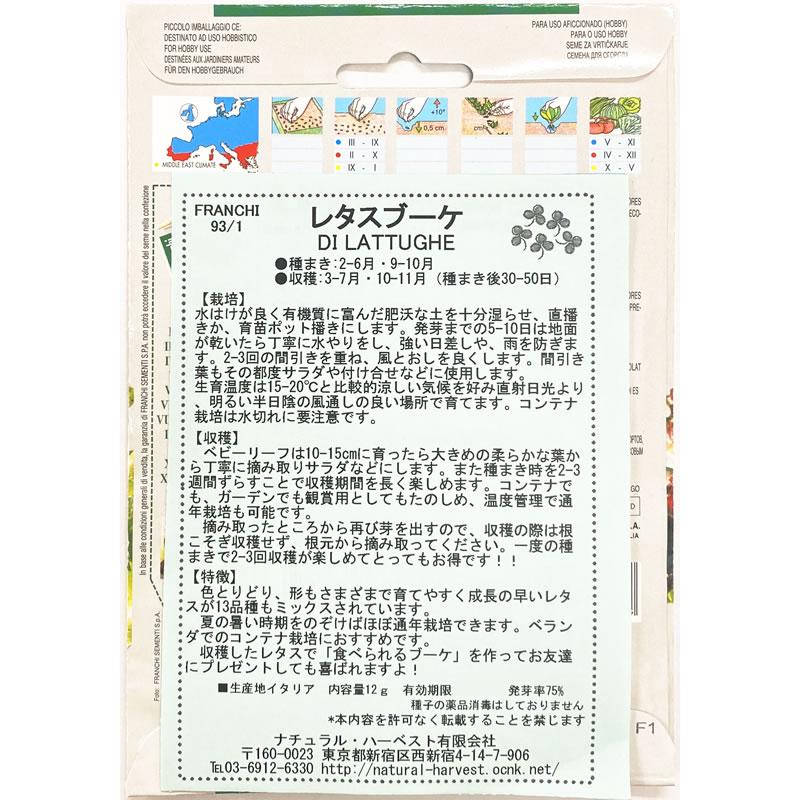 PICCOLO IMBALLAGGIO CE:
DESTINATO AD USO HOBBISTICO
FOR HOBBY USE
DESTINÉES AUX JARDINIERS AMATEURS
FÜR DEN HOBBYGEBRAUCH
PARA USO AFICCIONADO (HOBBY)
PARA O USO HOBBY
SEME ZA VRTIČKARJE
СЕМЕНА ДЛЯ ОГОРОДА
MIDDLE EAST CLIMATE
III - IX
II - X
IX - I
+10°
0,5 cm
cm²
V - XI
IV - XII
X - V
FRANCHI
93/1
レタスブーケ
DI LATTUGHE
●種まき:2-6月・9-10月
●収穫:3-7月・10-11月（種まき後30-50日）
【栽培】
水はけが良く有機質に富んだ肥沃な土を十分湿らせ、直播
きか、育苗ポット播きにします。発芽までの5-10日は地面
が乾いたら丁寧に水やりをし、強い日差しや、雨を防ぎま
す。2-3回の間引きを重ね、風とおしを良くします。間引き
葉もその都度サラダや付け合せなどに使用します。
生育温度は15-20℃と比較的涼しい気候を好み直射日光より
、明るい半日陰の風通しの良い場所で育てます。コンテナ
栽培は水切れに要注意です。
【収穫】
ベビーリーフは10-15cmに育ったら大きめの柔らかな葉か
ら丁寧に摘み取りサラダなどにします。また種まき時を2-3
週間ずらすことで収穫期間を長く楽しめます。コンテナで
も、ガーデンでも観賞用としてもたのしめ、温度管理で通
年栽培も可能です。
摘み取ったところから再び芽を出すので、収穫の際は根
こそぎ収穫せず、根元から摘み取ってください。一度の種
まきで2-3回収穫が楽しめてとってもお得です！！
【特徴】
色とりどり、形もさまざまで育てやすく成長の早いレタ
スが13品種もミックスされています。
夏の暑い時期をのぞけばほぼ通年栽培できます。ベラン
ダでのコンテナ栽培におすすめです。
収穫したレタスで「食べられるブーケ」を作ってお友達
にプレゼントしても喜ばれますよ！
■生産地イタリア 内容量12ｇ 有効期限 発芽率75%
種子の薬品消毒はしておりません
*本内容を許可なく転載することを禁じます
ナチュラル・ハーベスト有限会社
〒160-0023 東京都新宿区西新宿4-14-7-906
℡03-6912-6330 http://natural-harvest.ocnk.net/
In base alle condizioni generali di vendita, la garanzia di FRANCHI SEMENTI S.P.A. non potrà eccedere il valore del seme nella confezione
Foto: FRANCHI SEMENTI S.p.A.
F1